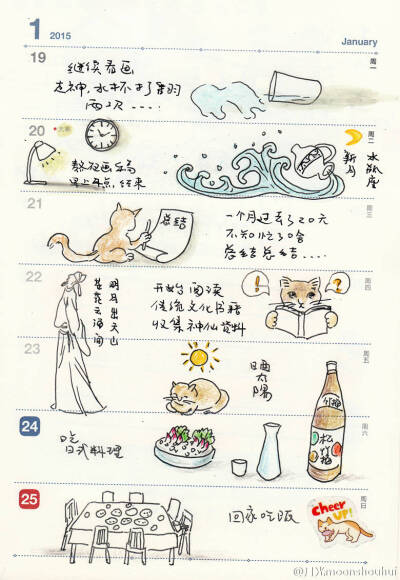 1 2015 January
19 周一
继续看画
走神,水杯打
两次....
20 大寒 周二
熬夜画
早上4点,结束
新月
水瓶座
21 周三
总结
一个月过去了20天
不知忙了啥
总结总结....
22 周四
明月出天山
苍茫云海间
开始阅读
传统文化书籍
收集神仙资料
! ?
23 周五
晒太阳
松竹梅
24 周六
吃
日式料理
25 周日
回家吃饭
Cheer
UP!